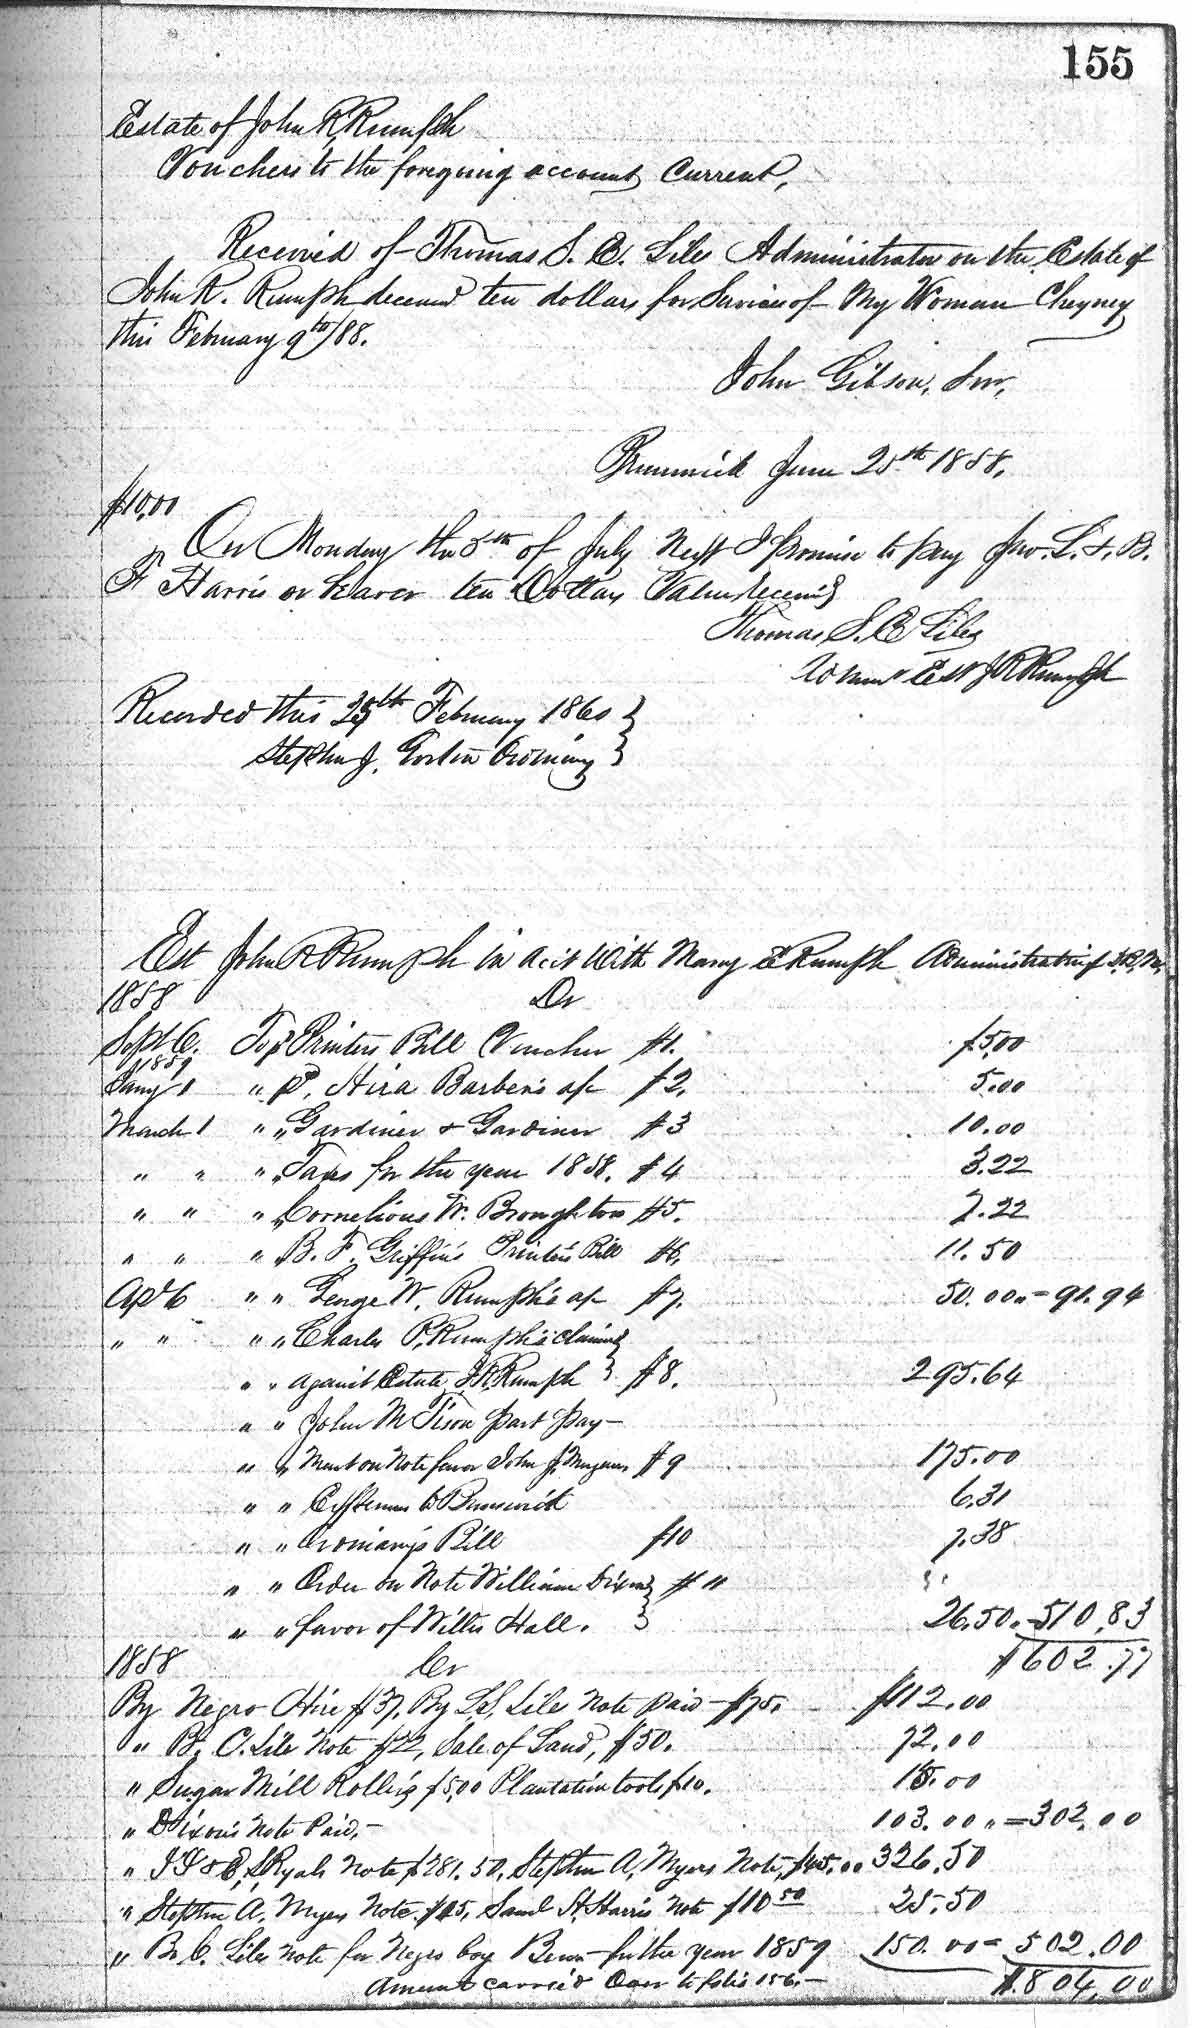 155
Estate of John R. Rumph
Vouchers to the foregoing account Current,
Received of Thomas S. E. Lile Administrator on the Estate of
John R. Rumph deceased ten dollars for Services of My Woman Cheyney
this February 9th/58.
John Gibson, Snr,
Brunswick June 25th 1858.
$10,00
On Monday the 5th of July Next I promise to pay Jno. L. & B.
F Harris or bearer ten Dollars Value received
Thomas S. E Liles
Admr Est J R Rumph
Recorded this 25th February 1860
Stephen J. Gorton Ordinary
Est John R Rumph in Acct With Mary E Rumph Administratrix
1858 Dr
Sept 6. To pd Printers Bill Voucher #1. $5,00
1859
Jany 1 " pd. Hira Barber's a/c #2. 5.00
March 1 " " Gardiner & Gardiner #3 10.00
" " " " Taxes for the year 1858. #4 3.22
" " " " Cornelious W. Broughton #5. 7.22
" " " " B. F. Griffin's Printer's Bill #6. 11.50
Apl 6 " " George W. Rumph's a/c #7. 50.00 " = 91.94
" " " " Charles P. Rumph's claim
" " against Estate J R Rumph #8. 295.64
" " John M Tison part pay-
" " ment on Note favor John J. #9 175.00
" " Expenses to Brunswick 6.31
" " Ordinary's Bill #10 7.38
" " Order on Note William Dixon #11
" " favor of Willis Hall. 26.50. = 510.83
$602.77
1858 Cr
By Negro Hire $37, By L. S. Lile Note paid - $75. $112.00
" B. C. Lile Note $22, Sale of Land, $50. 72.00
" Sugar Mill Rollers $5,00 Plantation tools $10. 15.00
" Dixon's Note Paid,- 103.00 " = 302,00
" Ryals Note $281.50, Stephen A, Myers Note, $45.00 326.50
" Stephen A. Myers Note $15, Saml H. Harris Note $10 50 25.50
" B. C. Lile Note for Negro boy Benn for the year 1859 150.00 = 502.00
Amount carried Over to folio 156.- $804,00